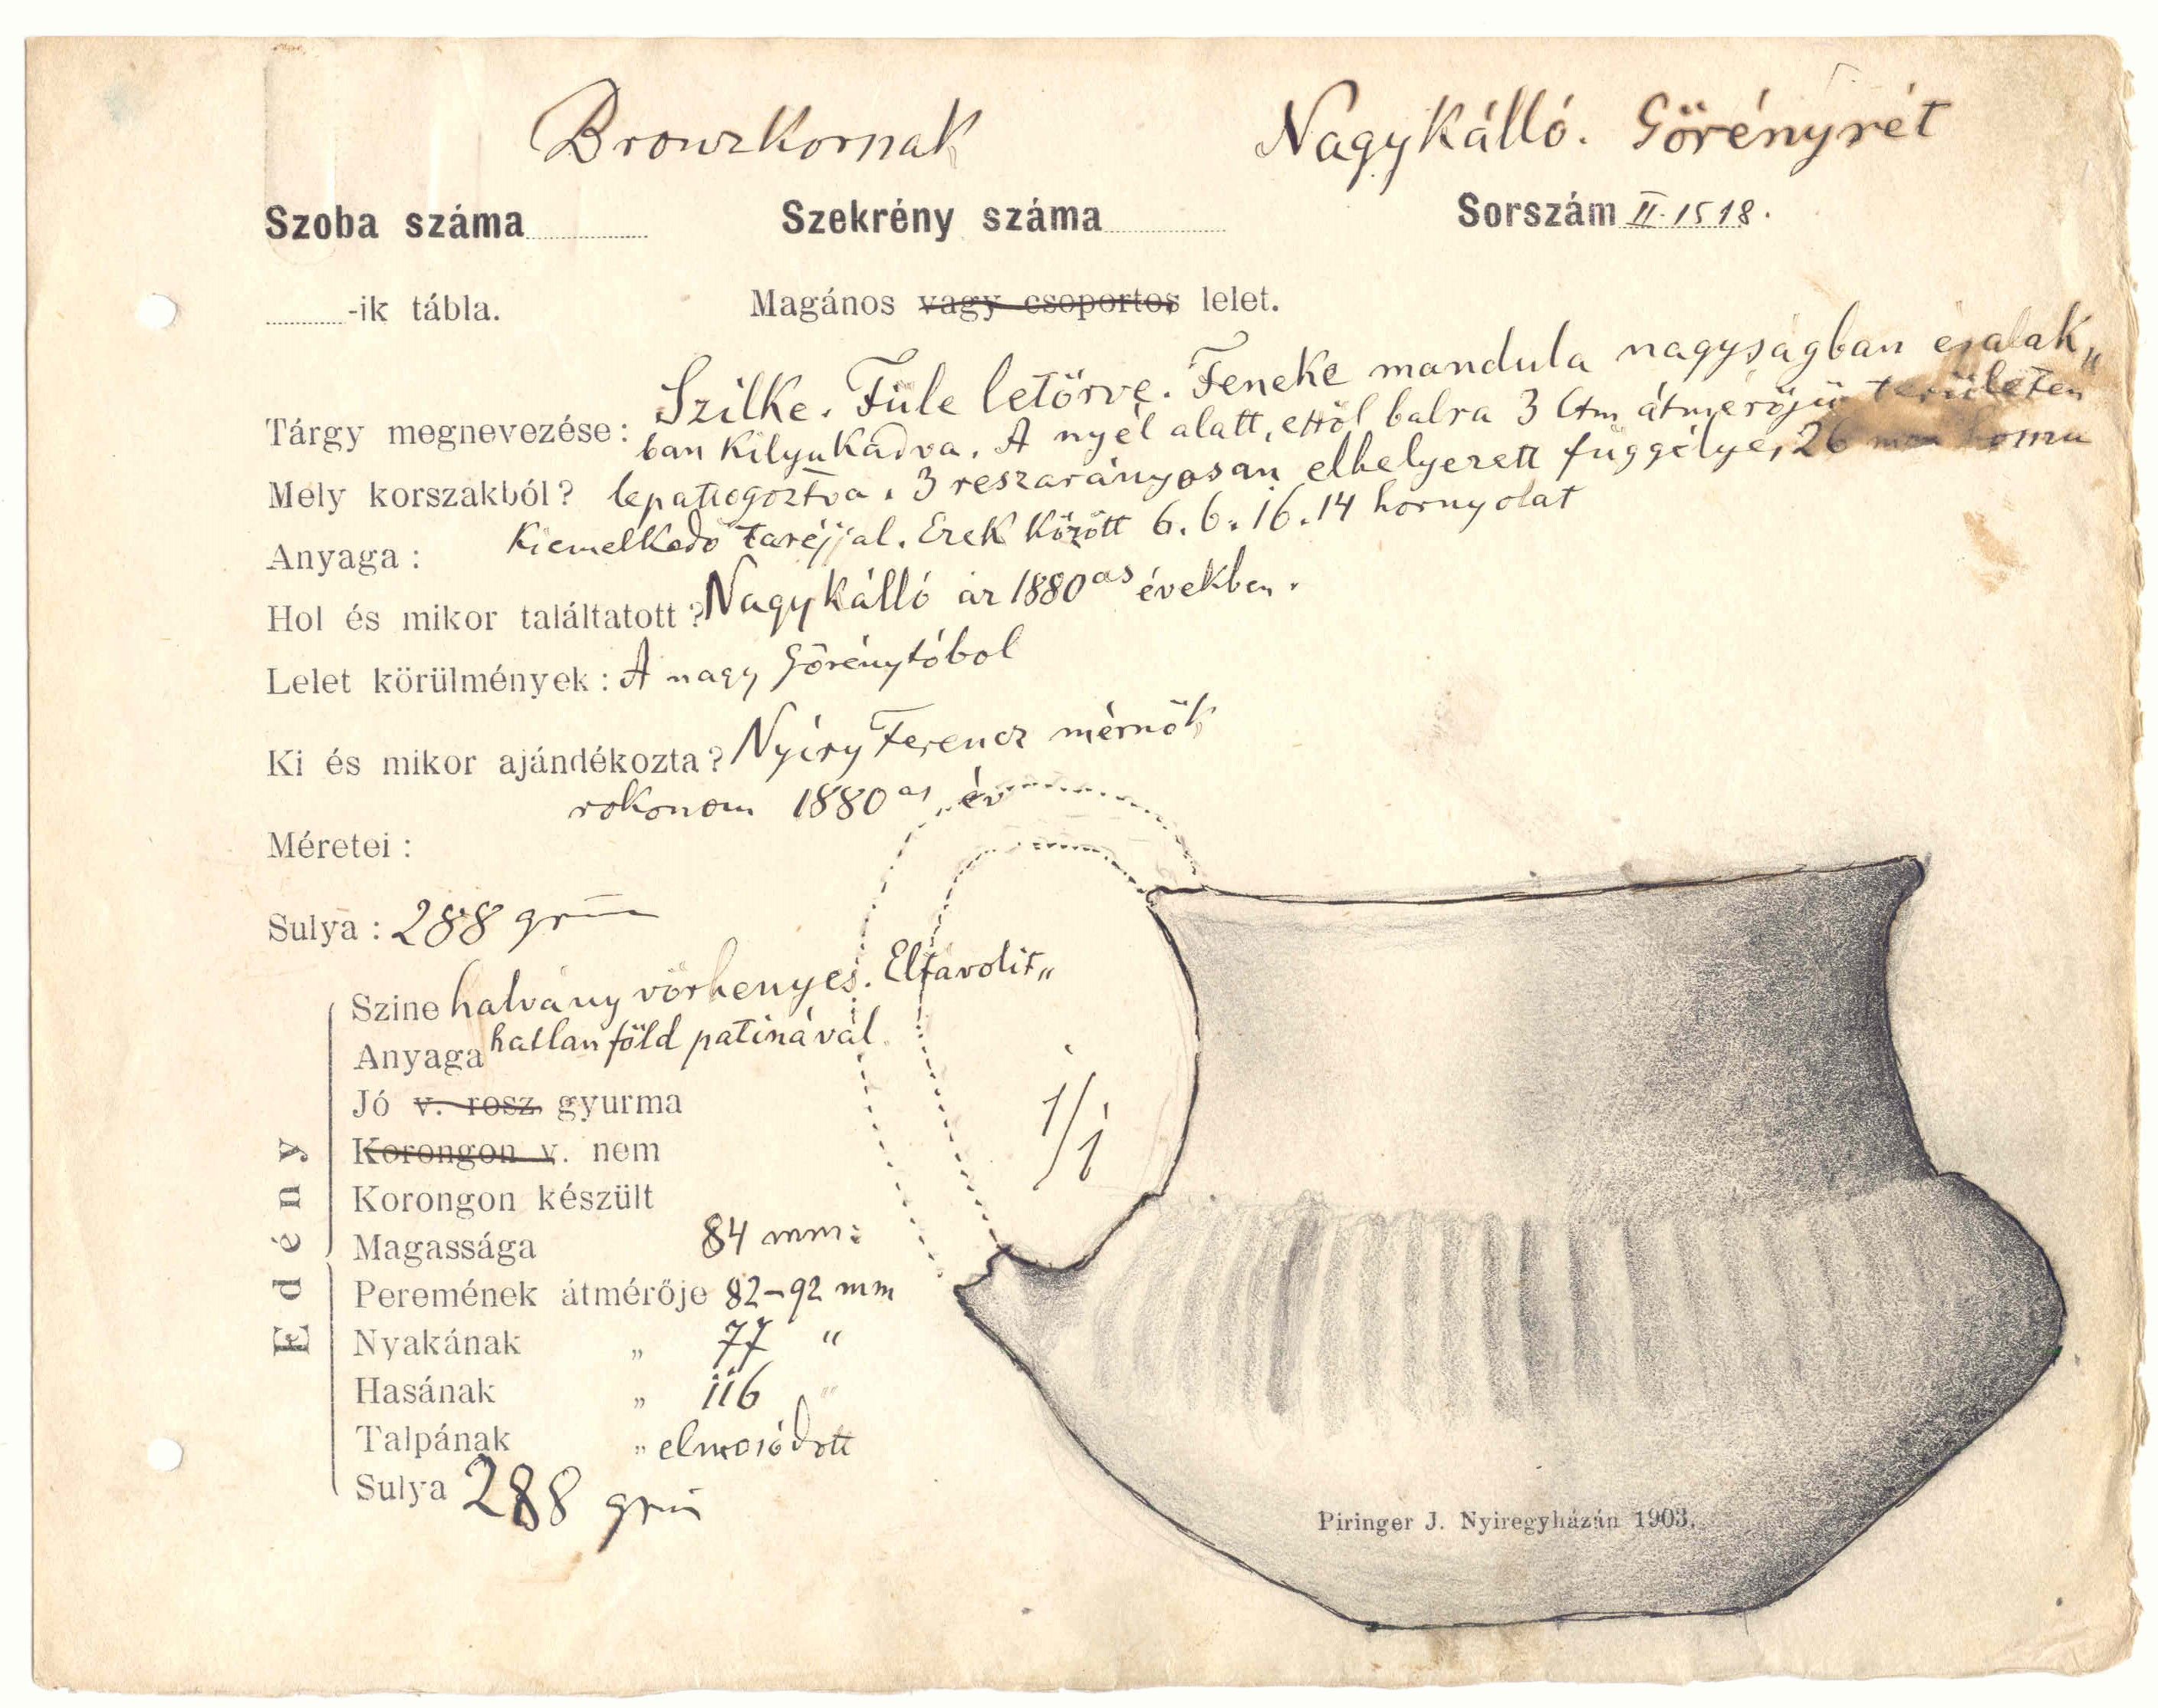 Bronzkornak Nagykálló. Görényrét
Szoba száma Szekrény száma Sorszám II. 1518.
-ik tábla. Magános vagy csoportos lelet.
Szilke. Füle letörve. Feneke mandula nagyságban és alak„
Tárgy megnevezése: ban kilyukadva. A nyél alatt, ettöl balra 3 Ctm átmérőjü területen
Mely korszakból? lepattogoztva. 3 reszarányosan elhelyezett függélye, 26 mm hosszu
Anyaga: Kiemelkedő taréjjal. Ezek között 6. 6. 16. 14 hornyolat
Hol és mikor találtatott? Nagykálló az 1880as években.
Lelet körülmények: A nagy Görénytóbol
Ki és mikor ajándékozta? Nyiry Ferencz mérnök
rokonom 1880as év
Méretei:
Sulya: 288 grm
Szine halvány vörhenyes. Eltávolit„
Anyaga hatlan föld patinával
Jó v. rosz gyurma
Korongon v. nem
Korongon készült
Edény
Magassága 84 mm:
Peremének átmérője 82-92 mm
Nyakának „ 77 "
Hasának „ 116 "
Talpának „ elmosódott
Sulya 288 grm
1/1
Piringer J. Nyiregyházán 1903.